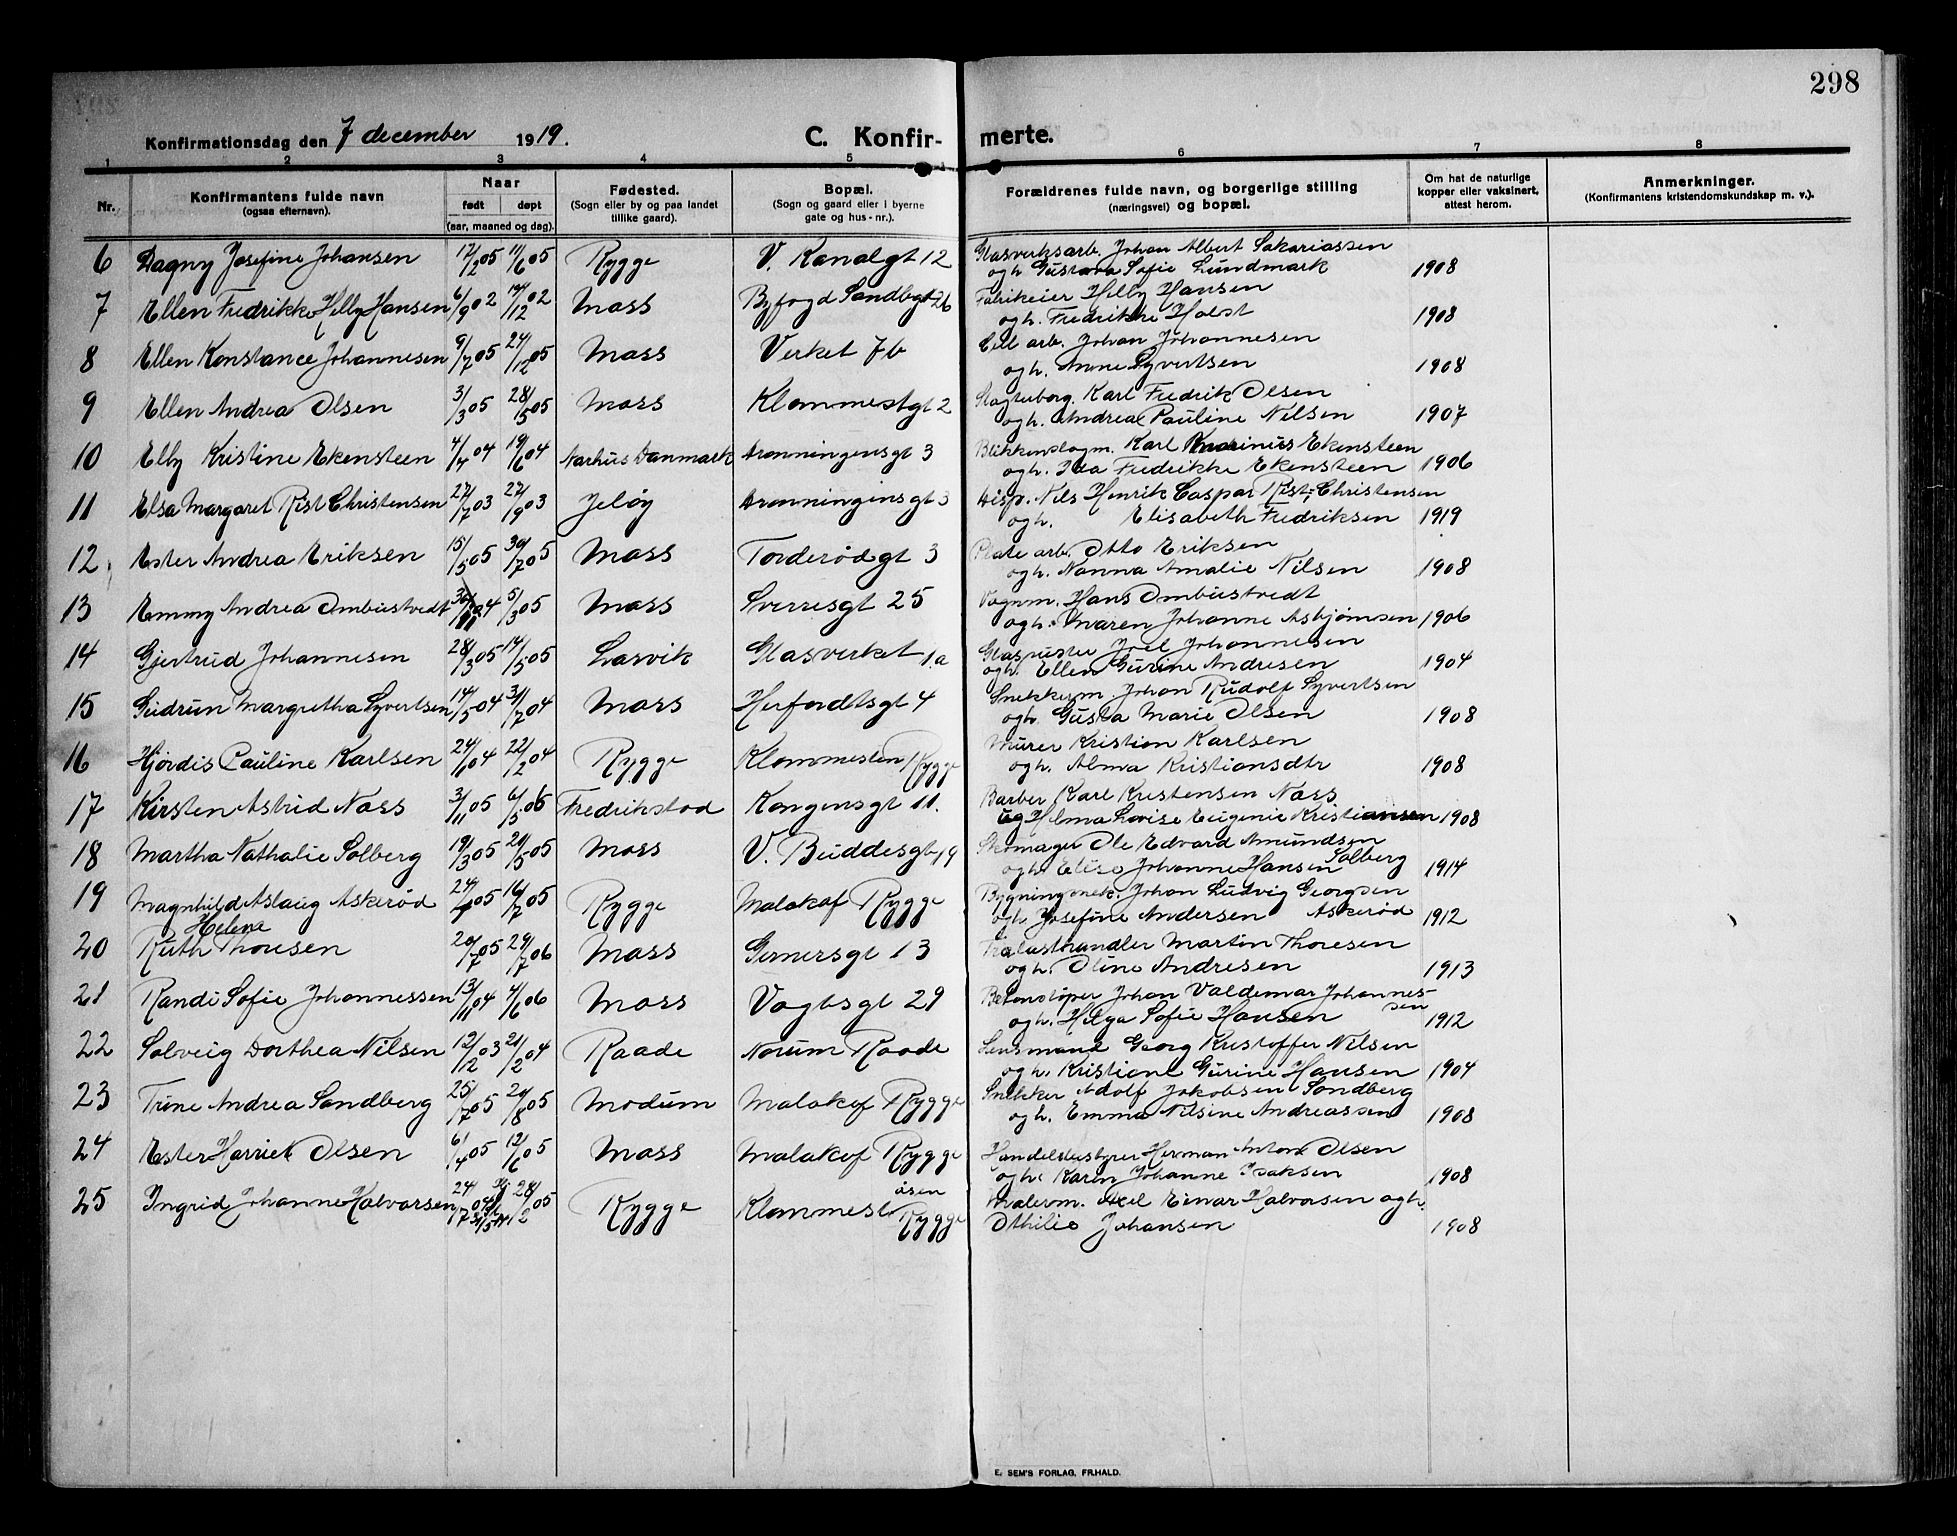 298
Konfirmationsdag den 7 december 1919.
C. Konfir- merte.
1 2 3 4 5 6 7 8
Nr.
Konfirmantens fulde navn
(ogsaa efternavn).
Naar
født døpt
(aar, maaned og dag).
Fødested.
(Sogn eller by og paa landet
tillike gaard).
Bopæl.
(Sogn og gaard eller i byerne
gate og hus-nr.).
Forældrenes fulde navn, og borgerlige stilling
(næringsvei) og bopæl.
Om hat de naturlige
kopper eller vaksinert,
attest herom.
Anmerkninger.
(Konfirmantens kristendomskundskap m. v.).
6 Dagny Josefine Johansen 17/2 05 11/6 05 Rygge V. Kanalgt 12 Glasverksarb. Johan Albert Sakariassen
ogh Gustava Sofie Lundmark 1908
7 Ellen Fredrikke Helby Hansen 6/9 02 14/12 02 Moss Byfogd Sandbgt 26 Fabrikeier Helby Hansen
ogh. Fredrikke Holst 1908
8 Ellen Konstance Johannesen 9/7 05 24/12 05 Moss Verket 7b Cell arb. Johan Johannesen
ogh. Anne Syvertsen 1908
9 Ellen Andrea Olsen 3/3 05 28/5 05 Moss Klommestgt 2 Slagterborg. Karl Fredrik Olsen
ogh. Andrea Pauline Nilsen 1907
10 Elly Kristine Ekensteen 4/4 04 19/6 04 Aarhus Danmark Dronningensgt 3 Blikkenslagm. Karl Marinius Ekensteen
ogh. Ida Fredrikke Ekensteen 1906
11 Elsa Margaret Rist Christensen 27/7 03 27/9 03 Jeløy Dronningensgt 3 Disp. Nils Henrik Caspar Rist-Christensen
ogh. Elisabeth Fredriksen 1919
12 Ester Andrea Eriksen 15/5 05 30/7 05 Moss Torderødgt 3 Plate arb. Otto Eriksen
ogh. Nanna Amalie Nilsen 1908
13 Emmy Andrea Ombustvedt 04 5/3 05 Moss Sverresgt 25 Vognm. Hans Ombustvedt
ogh. Maren Johanne Asbjørnsen 1906
14 Gjertrud Johannesen 28/3 05 14/5 05 Larvik Glasverket 1a Glaspuster Joel Johannesen
ogh. Ellen Gurine Andresen 1904
15 Gudrun Margretha Syvertsen 14/5 04 31/7 04 Moss Herfordtsgt 4 Snekkerm. Johan Rudolf Syvertsen
ogh. Gusta Marie Olsen 1908
16 Hjørdis Pauline Karlsen 04 22/12 04 Rygge Klommesten Rygge Murer Kristian Karlsen
ogh. Alma Kristiansdtr 1908
17 Kirsten Astrid Næss 3/11 05 6/5 06 Fredrikstad Kongensgt 11. Barber Karl Kristensen Næss
og Helma Lovise Eugenie Kristiansen 1908
18 Martha Nathalie Solberg 19/3 05 21/5 05 Moss V. Buddesgt 19 Skomager Ole Edvard Amundsen
ogh. Elise Johanne Hansen Solberg 1914
19 Magnhild Aslaug Askerød 05 16/7 05 Rygge Malakof Rygge Bygningsnek. Johan Ludvig Georgsen
ogh. Josefine Andersen Askerød 1912
Helene
20 Ruth Thoresen 20/7 05 29/7 06 Moss Gernersgt 13 Trælasthandler Martin Thoresen
ogh. Oline Andresen 1913
21 Randi Sofie Johannessen 13/11 04 4/6 06 Moss Vogtsgt 29 Betonstøper Johan Valdemar Johannes-
sen
ogh. Helga Sofie Hansen 1912
22 Solveig Dorthea Nilsen 12/12 03 21/2 04 Raade Norum Raade Lensmand Georg Kristoffer Nilsen
ogh. Kristiane Gurine Hansen 1904
23 Trine Andrea Sandberg 25/7 05 20/8 05 Modum Malakof Rygge Snekker Adolf Jakobsen Sandberg
ogh. Emma Nilsine Andreassen 1908
24 Ester Harriet Olsen 6/4 05 12/6 05 Moss Malakof Rygge Handelsbestyrer Herman Anton Olsen
ogh. Karen Johanne Isaksen 1908
25 Ingrid Johanne Halvorsen 24/7 04 28/12 05 Rygge Klommest øsen Rygge Malerm. Axel Einar Halvorsen ogh.
Othilie Johansen 1908
E. SEM'S FORLAG, FR.HALD.